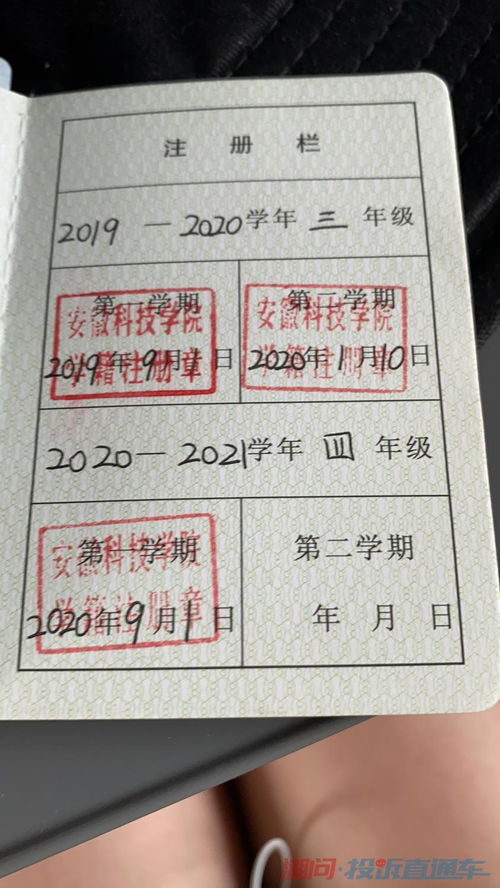 注 册 栏
2019 — 2020学年 三 年级
第一学期
安徽科技学院
学籍注册章
2019年9月1日
第二学期
安徽科技学院
学籍注册章
2020年1月10日
2020 — 2021学年 四 年级
第一学期
安徽科技学院
学籍注册章
2020年9月1日
第二学期
年 月 日
湘问·投诉直通车